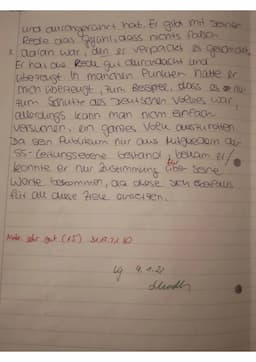 und durchgeplant hat. Er gibt mit seiner
Rede das Gefühl, dass nichts falsch
daran war, den er verpackt es geschickt.
Er hat die Rede gut durchdacht und
überzeugt. In manchen Punkten hätte er
mich überzeugt, zum Beispiel, dass es
zum Schutz des Deutschen Volkes war,
allerdings kann man nicht einfach
versuchen, ein ganzes Volk auszurotten.
Da sein Publikum nur aus Mitgliedern der
SS-Leitungsebene bestand, bekam er/
konnte er nur Zustimmung für seine
Worte bekommen, da diese sich ebenfalls
für all diese Ziele einsetzen.
sehr gut (15)
9.1.21